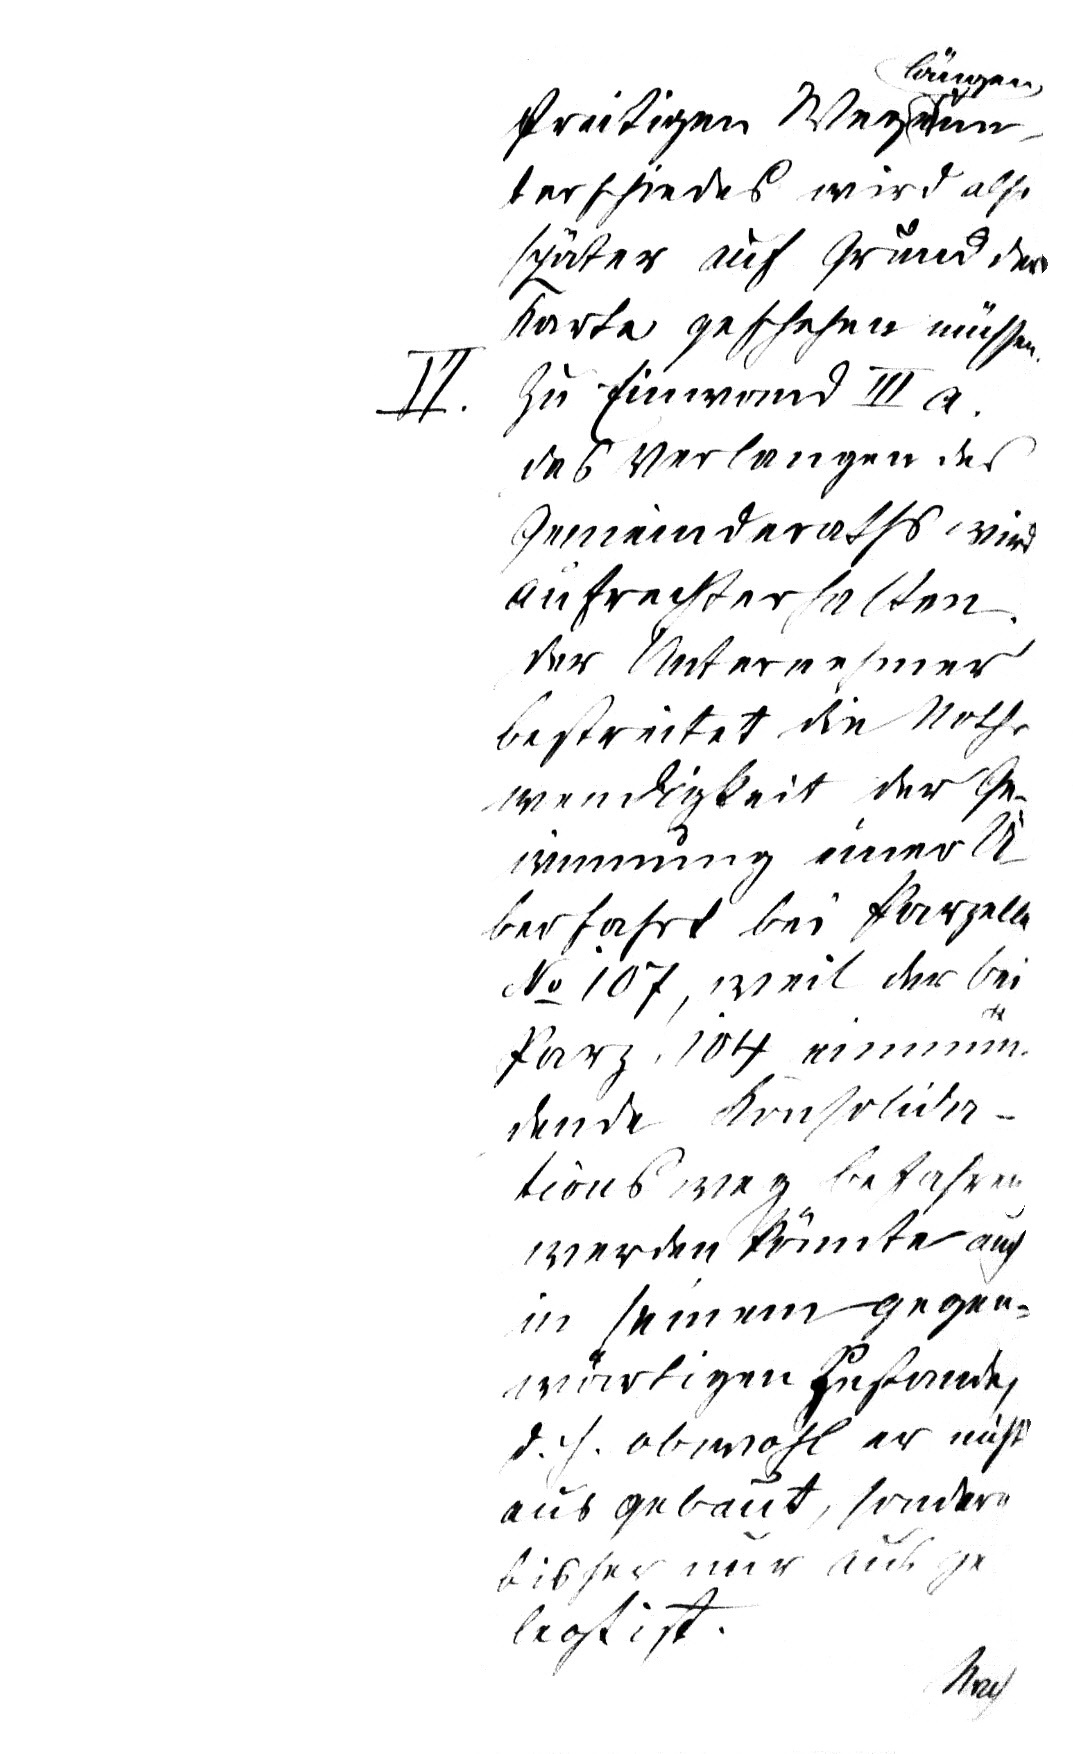 längen
streitigen Wegeun-
terschiedes wird also
später auf Grund der
Karte geschehen müssen.
VI. Zu Einwand III a.
das Verlangen des
Gemeinderaths wird
aufrechterhalten.
der Unternehmer
bestreitet die Noth-
wendigkeit der Ge-
winnung einer Ü-
berfahrt bei Parzelle
No 107, weil der bei
Parz. 104 einmün-
dende Konsolida-
tionsweg befahren
werden könnte auch
in seinem gegen-
wärtigen Zustande,
d. h. obwohl er nicht
ausgebaut, sondern
bisher nur ausge
legt ist.
Nach